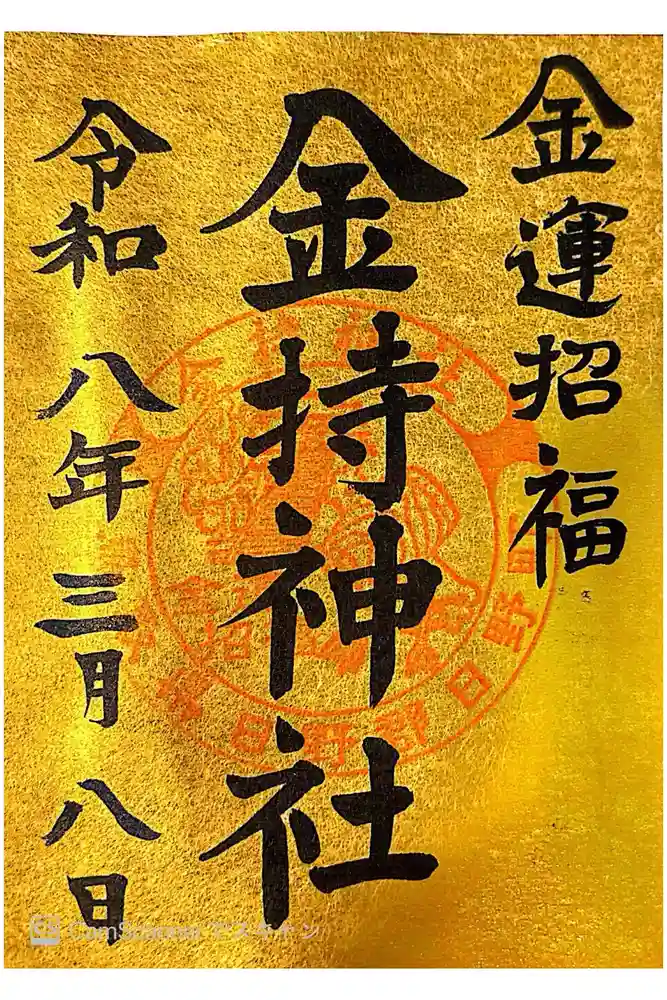 金運招福
金持神社
令和八年三月八日
CamScanner でスキャン